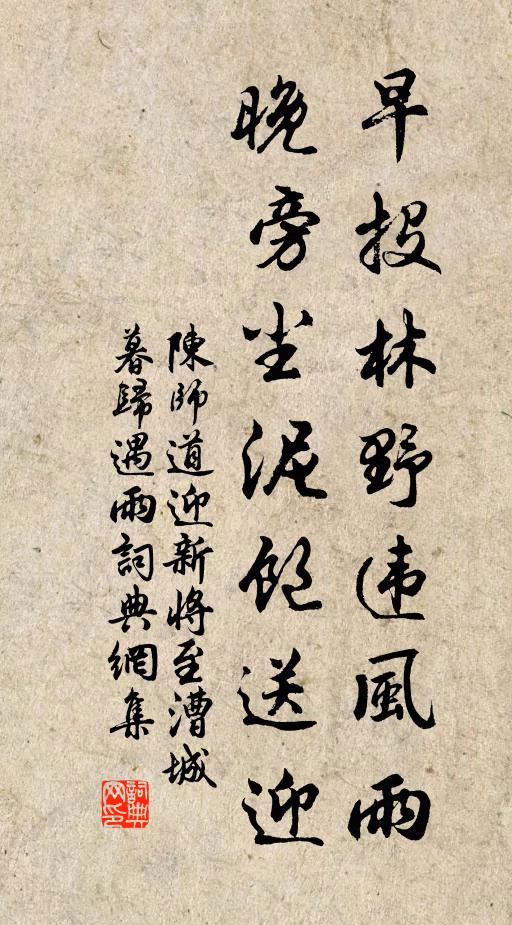 早投林野违風雨
晚旁尘泥饱送迎
陳師道迎新将至漕城
暮歸遇雨詞典網集
詞典网印